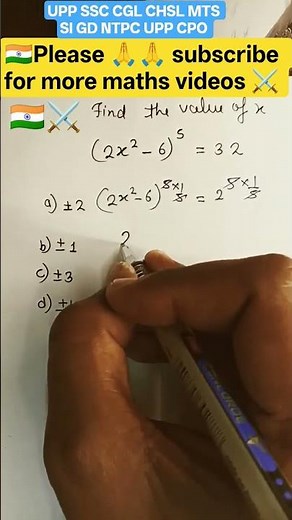 UPP SSC CGL CHSL MTS
SI GD NTPC UPP CPO
🇮🇳Please 🙏🙏 subscribe
for more maths videos ⚔️
🇮🇳⚔️ Find the value of x
(2x² - 6)⁵ = 32
a) ±2 (2x² - 6)^(5×1/5) = 2^(5×1/5)
b) ±1 2
c) ±3
d) ±